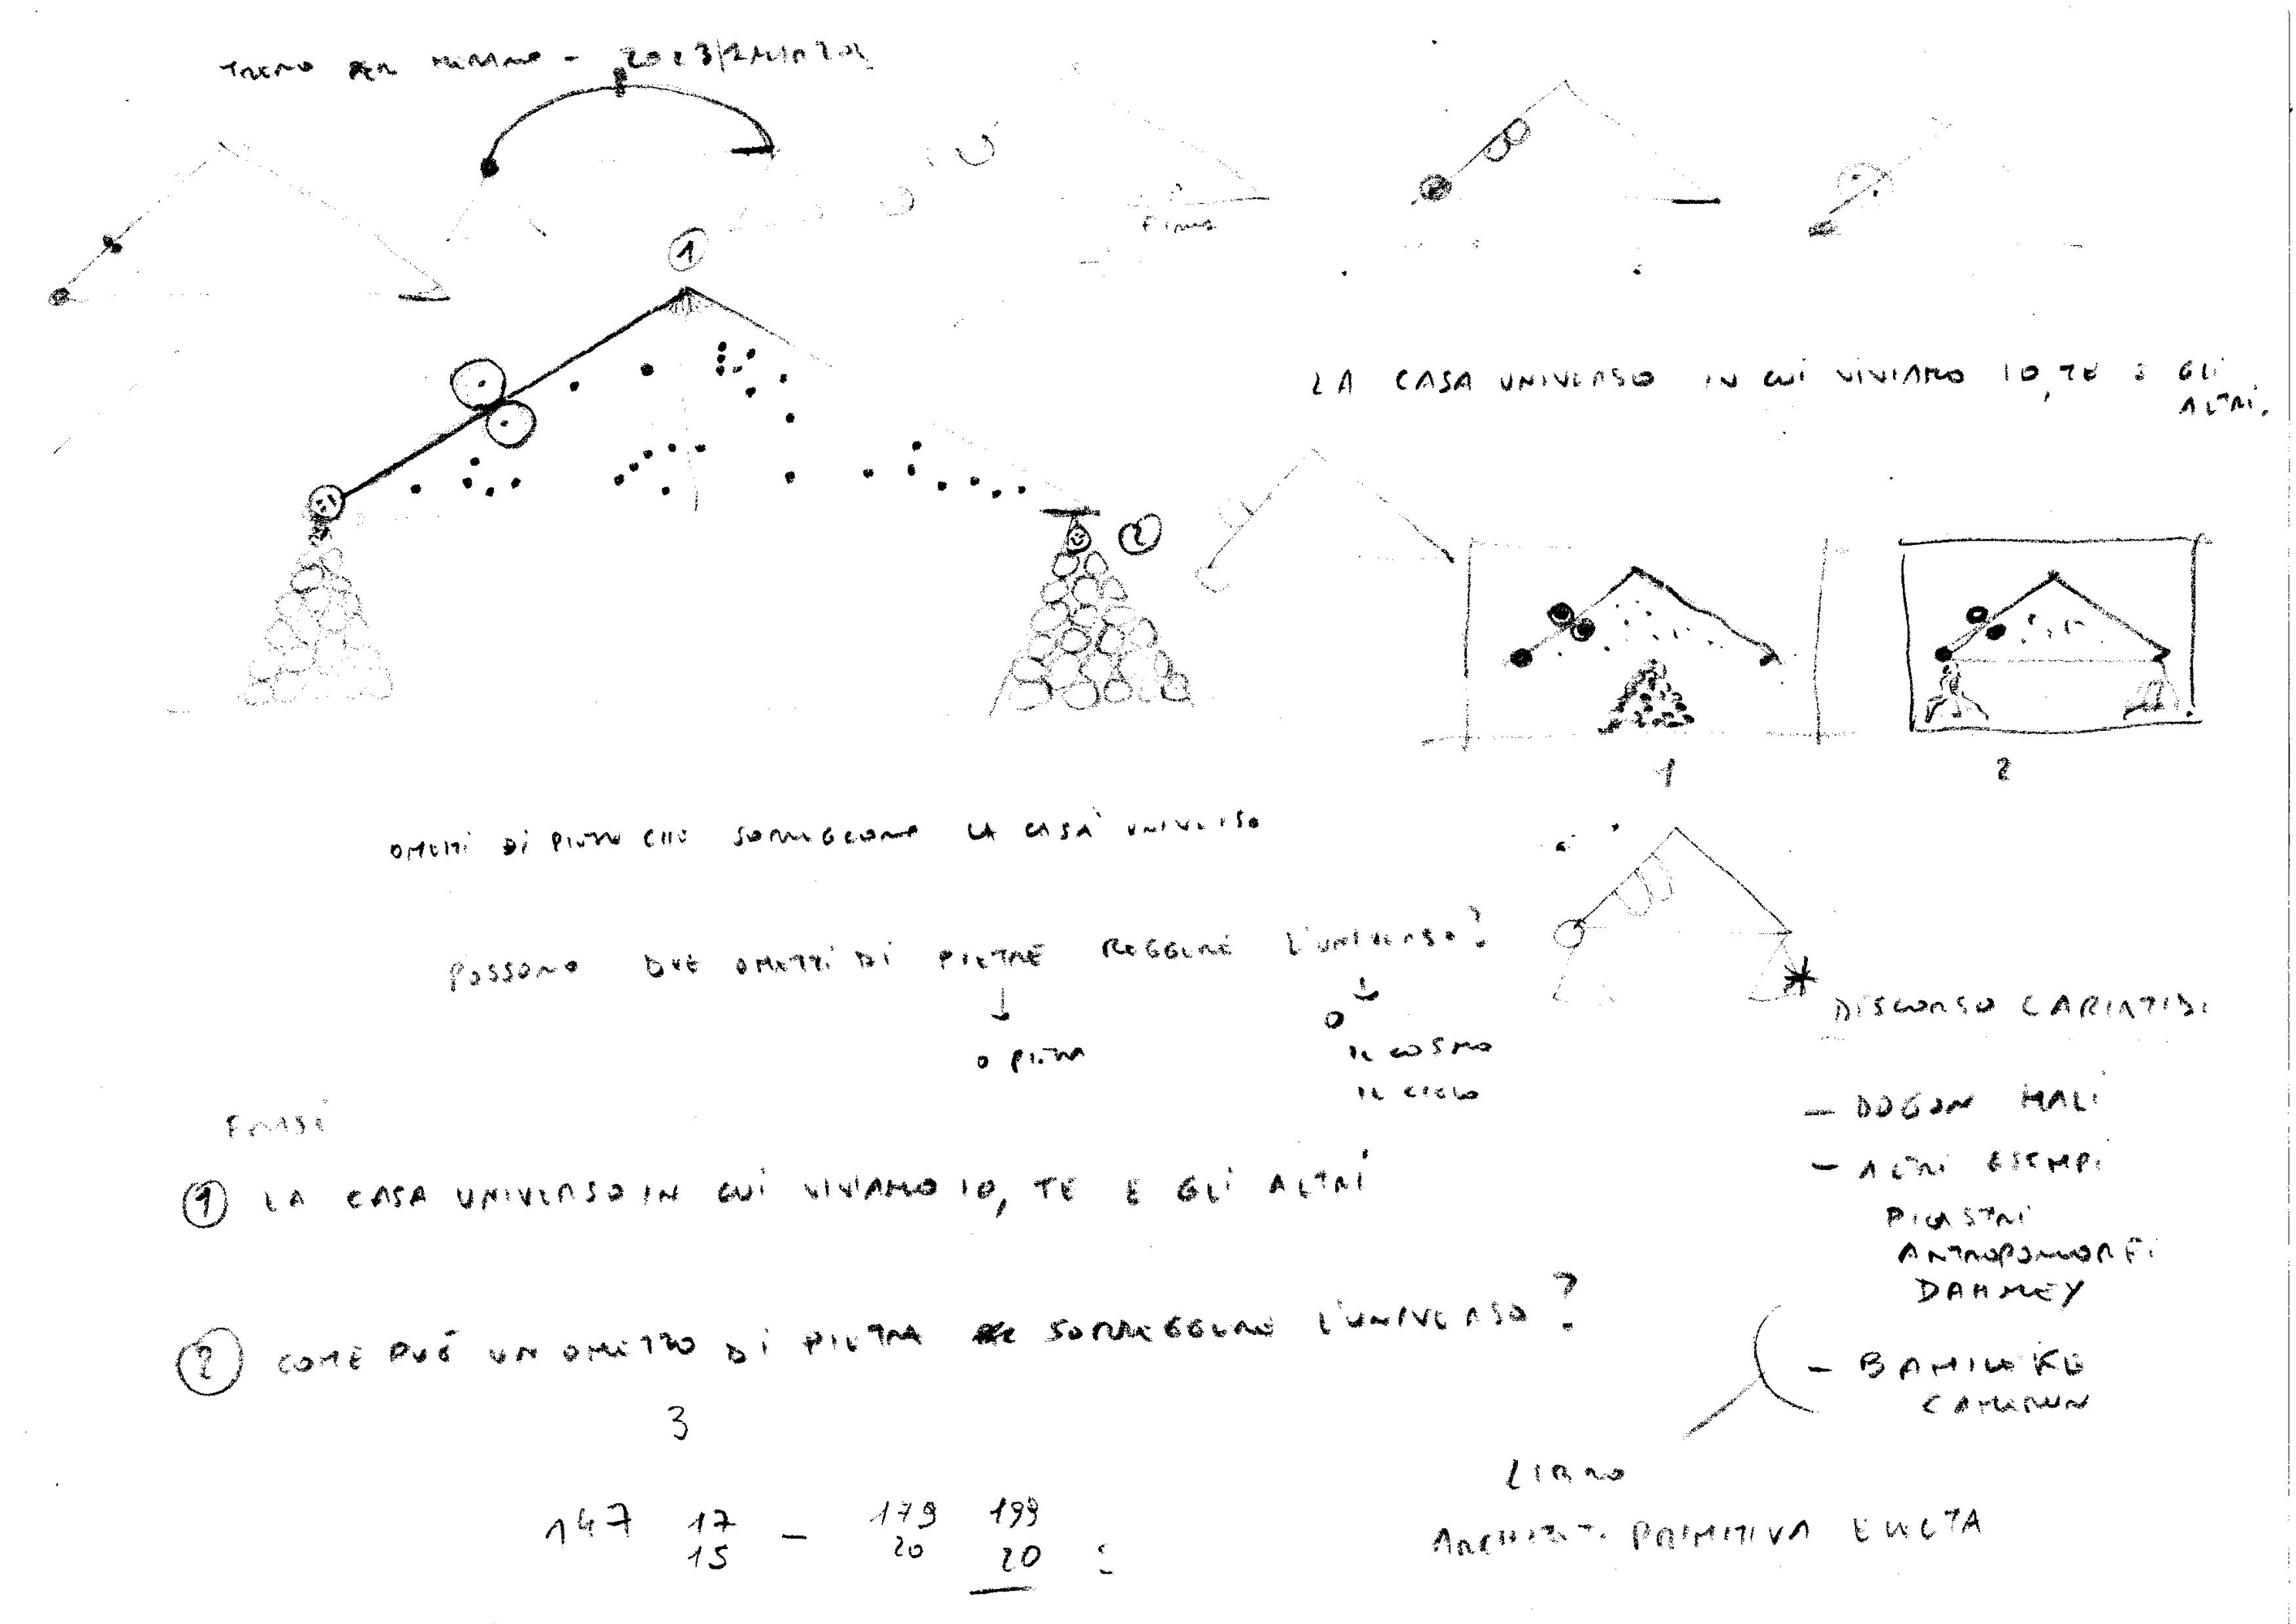 TRENO PER MERANO - 2023/2
1
FIENO
LA CASA UNIVERSO IN CUI VIVIAMO IO, TE E GLI
ALTRI.
2
1
2
OMETTI DI PIETRA CHE SORREGGONO LA CASA UNIVERSO
POSSONO DUE OMETTI DI PIETRE REGGERE L'UNIVERSO?
O PIETRA
O
IL COSMO
IL CIELO
DISCORSO CARIATIDI
- DOGON MALI
- ALTRI ESEMPI
PILASTRI
ANTROPOMORFI
DAHOMEY
- BAMILEKE
CAMERUN
FRASI
1 LA CASA UNIVERSO IN CUI VIVIAMO IO, TE E GLI ALTRI
2 COME PUÒ UN OMETTO DI PIETRA SORREGGERE L'UNIVERSO?
3
147 17 - 179 199
15 20 20
LIBRO
PRIMITIVA ELECTA